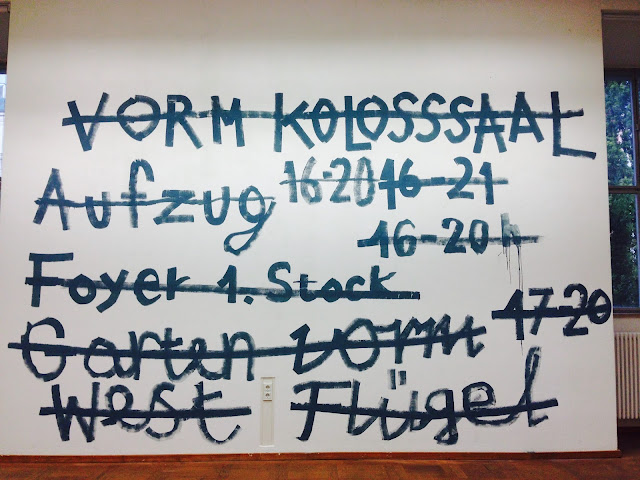 VORM KOLOSSSAAL
Aufzug 16-20 16-21
16-20 h
Foyer 1. Stock
17-20
Garten vorm
West Flügel